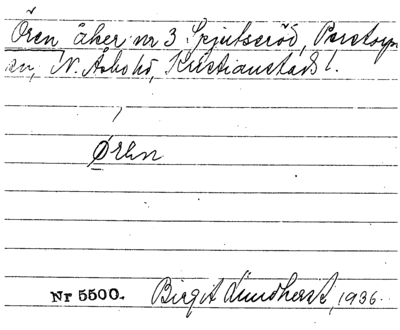 Ören åker nr 3 Spjutseröd, Perstorps
sn, N. Åsbo hd, Kristianstads l.
Ørhn
Nr 5500. Birgit Lundherst, 1936.